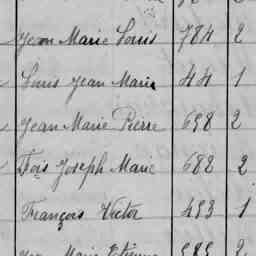 Jean Marie Louis 784 2
Louis Jean Marie 44 1
Jean Marie Pierre 698 2
Fois Joseph Marie 682 2
François Victor 493 1
Jean Marie Etienne 585 2